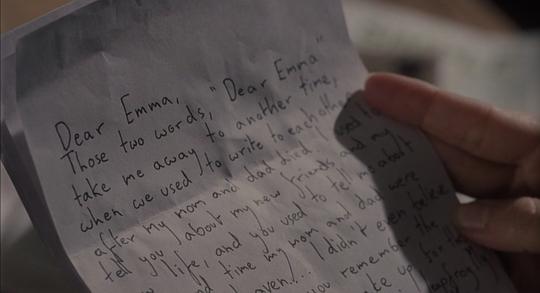 Dear Emma,
Those two words, "Dear Emma"
take me away to another time,
when we used to write to each other
after my mom and dad died. I used to
tell you about my new friends and my
life, and you used to tell me about
time my mom and dad were
I didn't even
you remember the
up for